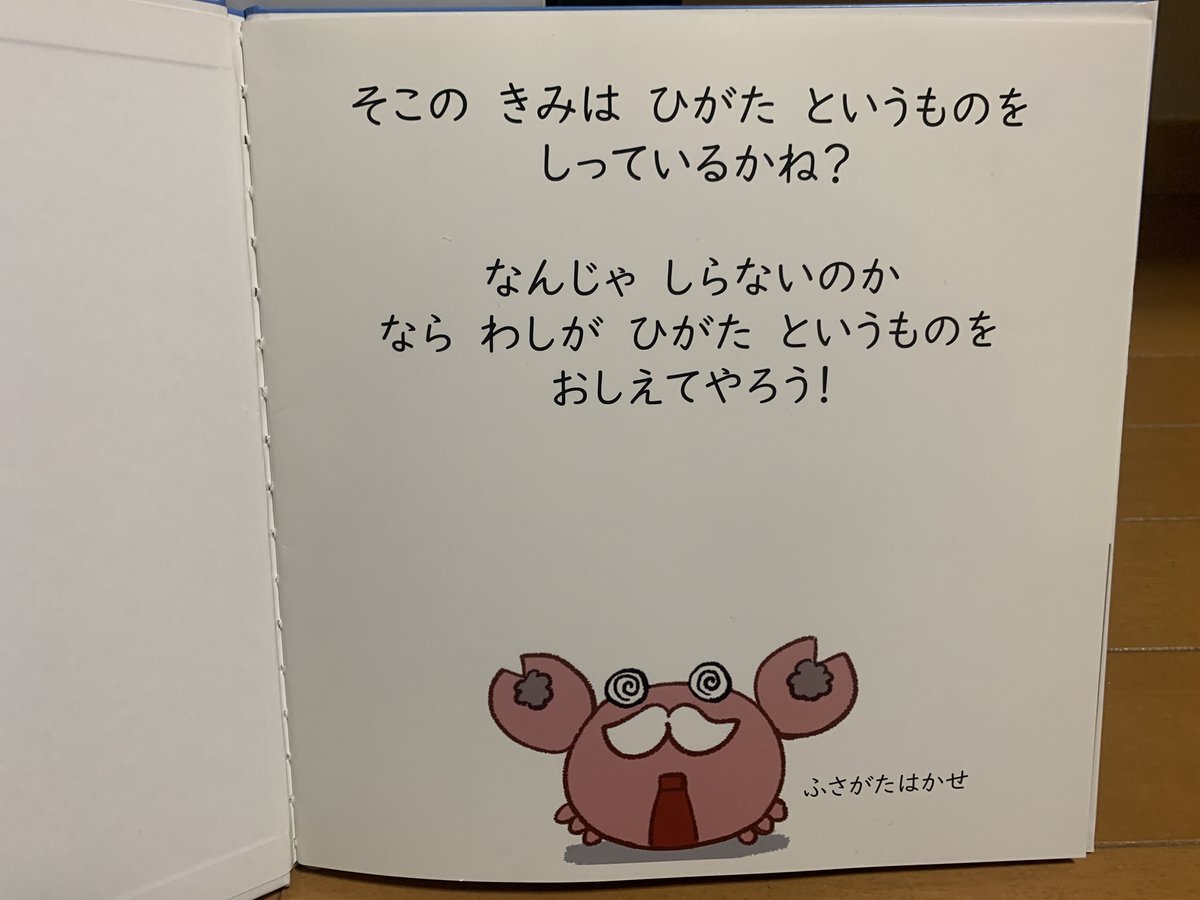 そこの きみは ひがた というものを
しっているかね？
なんじゃ しらないのか
なら わしが ひがた というものを
おしえてやろう！
ふさがたはかせ